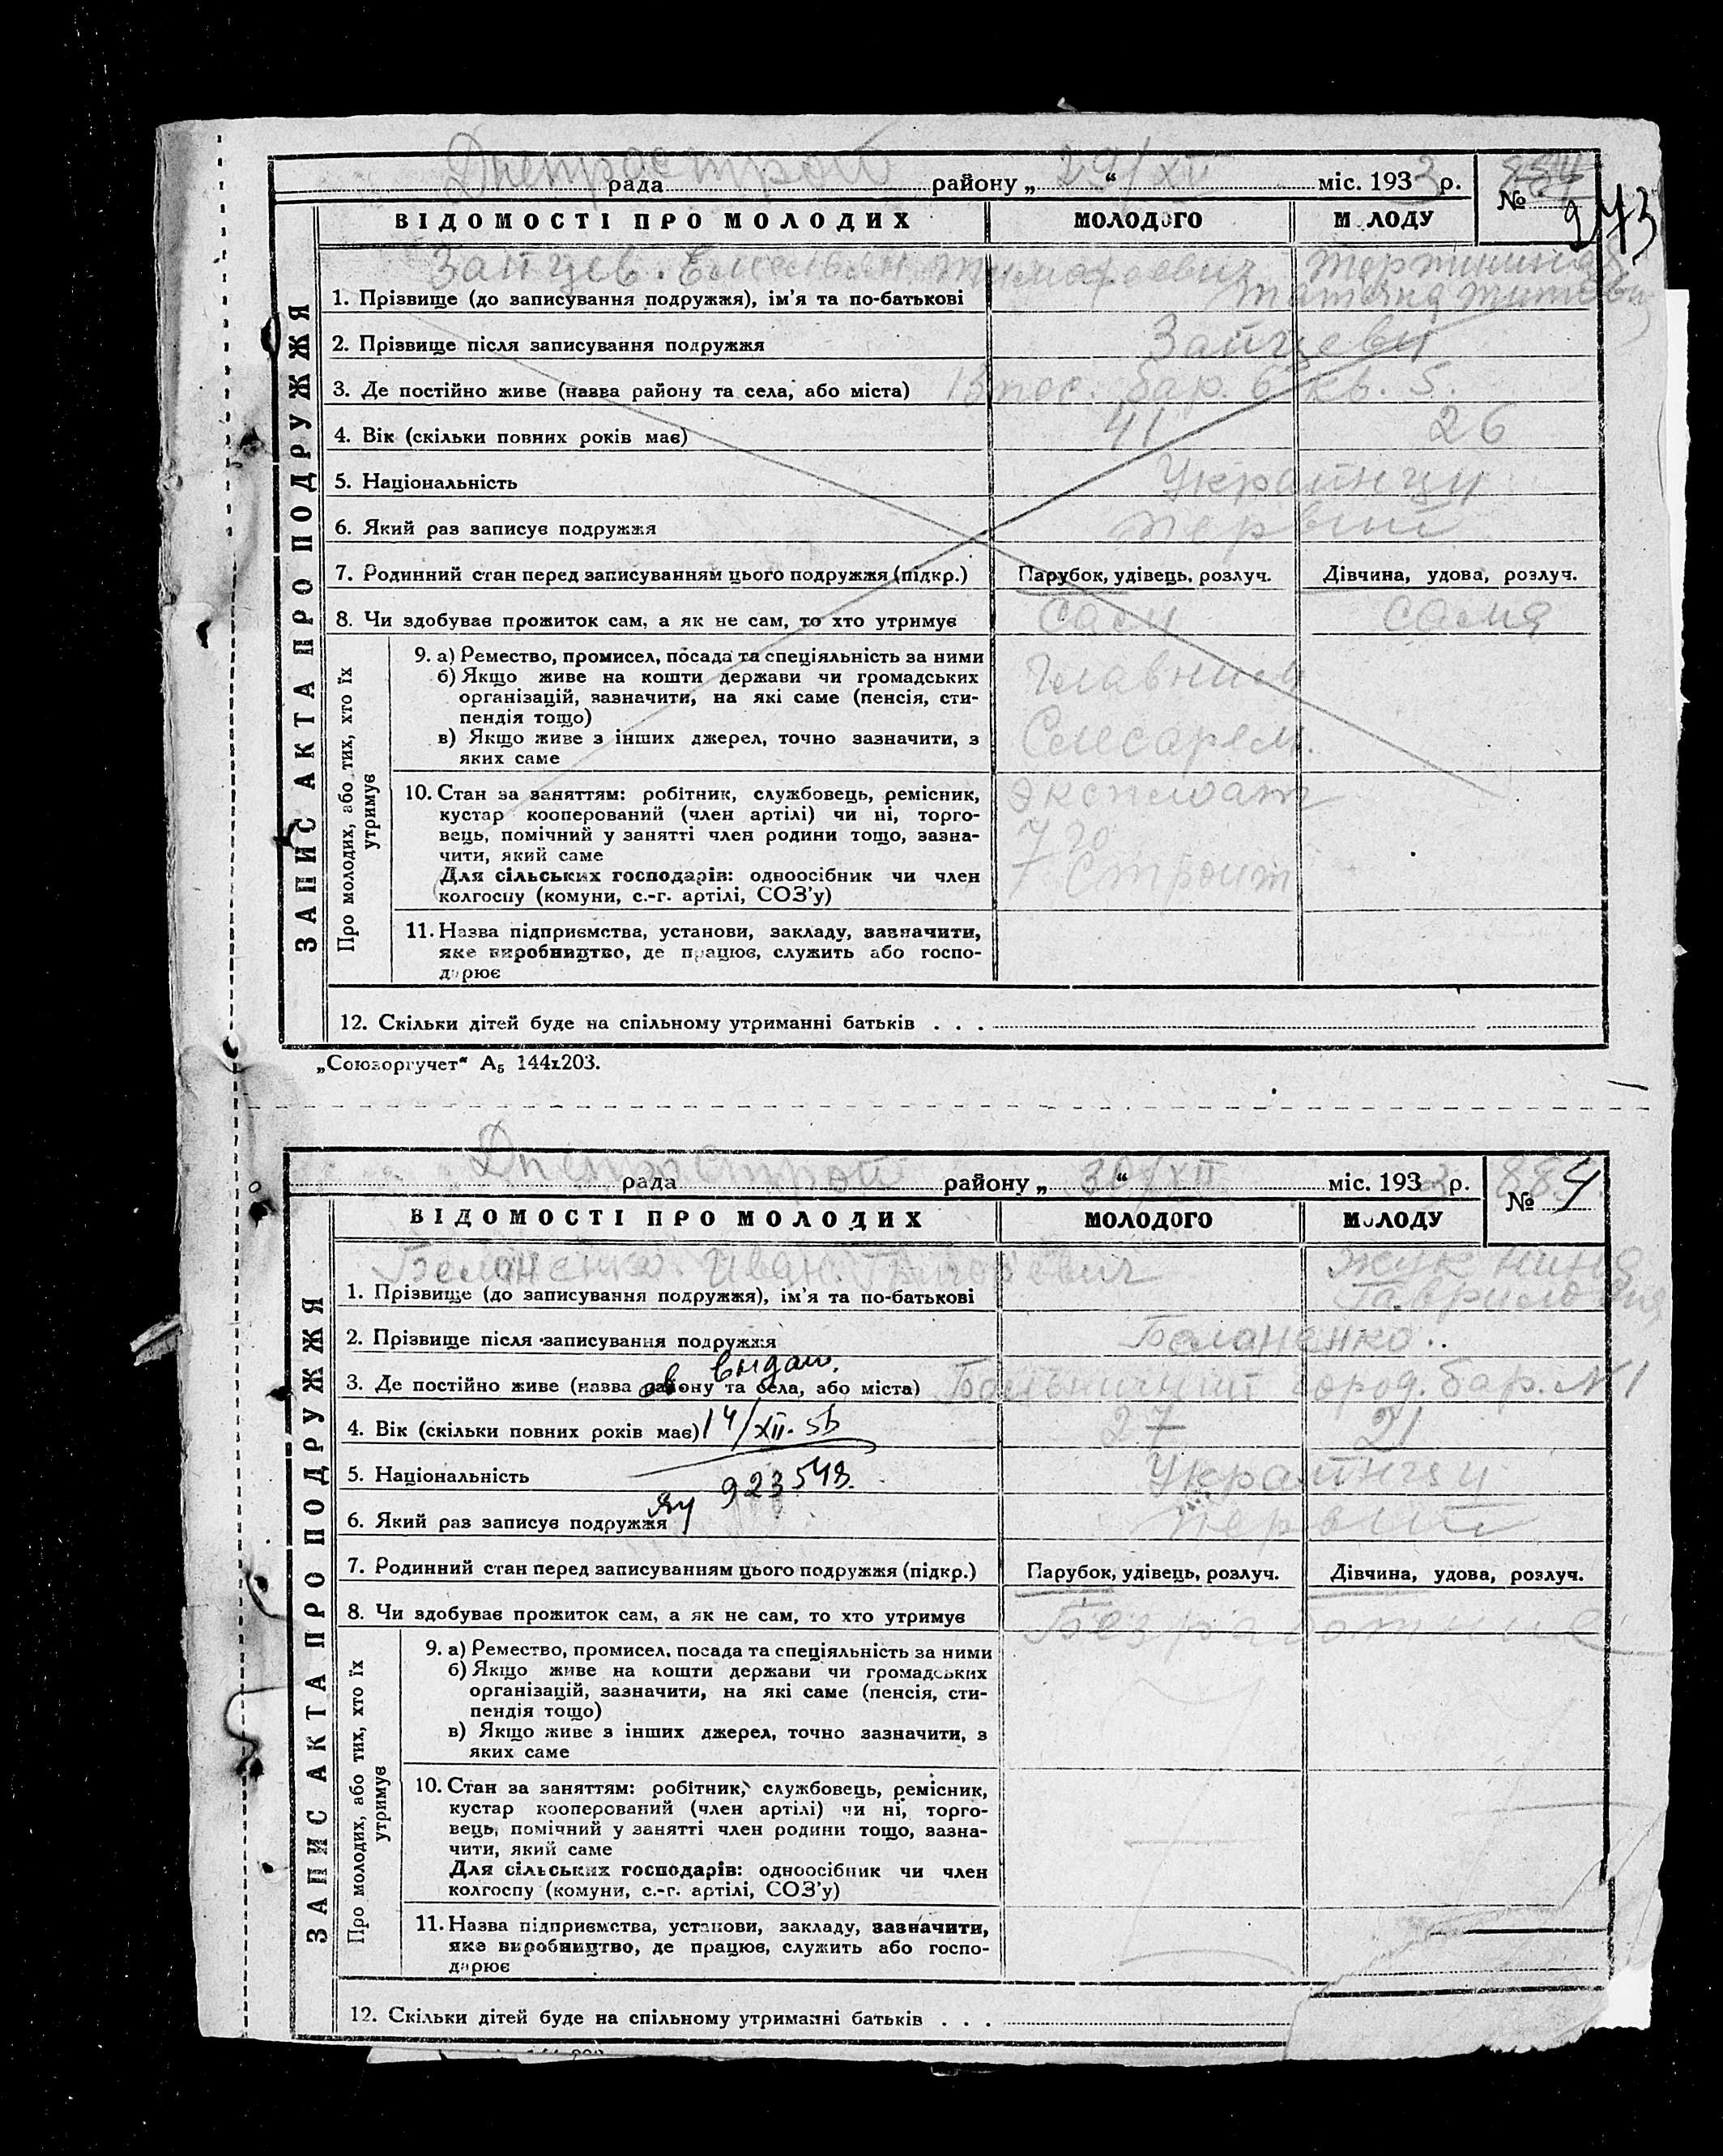 Днепрострой 29/XII 884
рада району „ “ міс. 1933 р. №
273
ВІДОМОСТІ ПРО МОЛОДИХ МОЛОДОГО М ЛОДУ
Зайцев
Татьяна
1. Прізвище (до записування подружжя), ім'я та по-батькові
2. Прізвище після записування подружжя Зайцеви
3. Де постійно живе (назва району та села, або міста) бар. 6 кв. 5.
4. Вік (скільки повних років має) 41 26
5. Національність Украинци
6. Який раз записує подружжя первий
7. Родинний стан перед записуванням цього подружжя (підкр.) Парубок, удівець, розлуч. Дівчина, удова, розлуч.
8. Чи здобуває прожиток сам, а як не сам, то хто утримує сам сама
9. а) Ремество, промисел, посада та спеціяльність за ними
б) Якщо живе на кошти держави чи громадських
організацій, зазначити, на які саме (пенсія, сти-
пендія тощо)
в) Якщо живе з інших джерел, точно зазначити, з
яких саме
Слесарем.
10. Стан за заняттям: робітник, службовець, ремісник,
кустар кооперований (член артілі) чи ні, торго-
вець, помічний у занятті член родини тощо, зазна-
чити, який саме
Для сільських господарів: одноосібник чи член
колгоспу (комуни, с.-г. артілі, СОЗ'у)
11. Назва підприємства, установи, закладу, зазначити,
яке виробництво, де працює, служить або госпо-
дарює
12. Скільки дітей буде на спільному утриманні батьків . . .
ЗАПИС АКТА ПРО ПОДРУЖЖЯ
Про молодих, або тих, хто їх
утримує
„Союзоргучет“ А5 144х203.
Днепрострой 30/XII
рада району „ “ міс. 193 р. №
ВІДОМОСТІ ПРО МОЛОДИХ МОЛОДОГО МОЛОДУ
Беланенко Иван Григоревич Жук Нина
Гавриловна
1. Прізвище (до записування подружжя), ім'я та по-батькові
2. Прізвище після записування подружжя Беланенко.
св выдан.
3. Де постійно живе (назва району та села, або міста) город. бар. № 1
4. Вік (скільки повних років має) 14/XII-56 27 21
5. Національність 923548 Украинци
6. Який раз записує подружжя первий
7. Родинний стан перед записуванням цього подружжя (підкр.) Парубок, удівець, розлуч. Дівчина, удова, розлуч.
8. Чи здобуває прожиток сам, а як не сам, то хто утримує
9. а) Ремество, промисел, посада та спеціяльність за ними
б) Якщо живе на кошти держави чи громадських
організацій, зазначити, на які саме (пенсія, сти-
пендія тощо)
в) Якщо живе з інших джерел, точно зазначити, з
яких саме
10. Стан за заняттям: робітник, службовець, ремісник,
кустар кооперований (член артілі) чи ні, торго-
вець, помічний у занятті член родини тощо, зазна-
чити, який саме
Для сільських господарів: одноосібник чи член
колгоспу (комуни, с.-г. артілі, СОЗ'у)
11. Назва підприємства, установи, закладу, зазначити,
яке виробництво, де працює, служить або госпо-
дарює
12. Скільки дітей буде на спільному утриманні батьків . . .
ЗАПИС АКТА ПРО ПОДРУЖЖЯ
Про молодих, або тих, хто їх
утримує